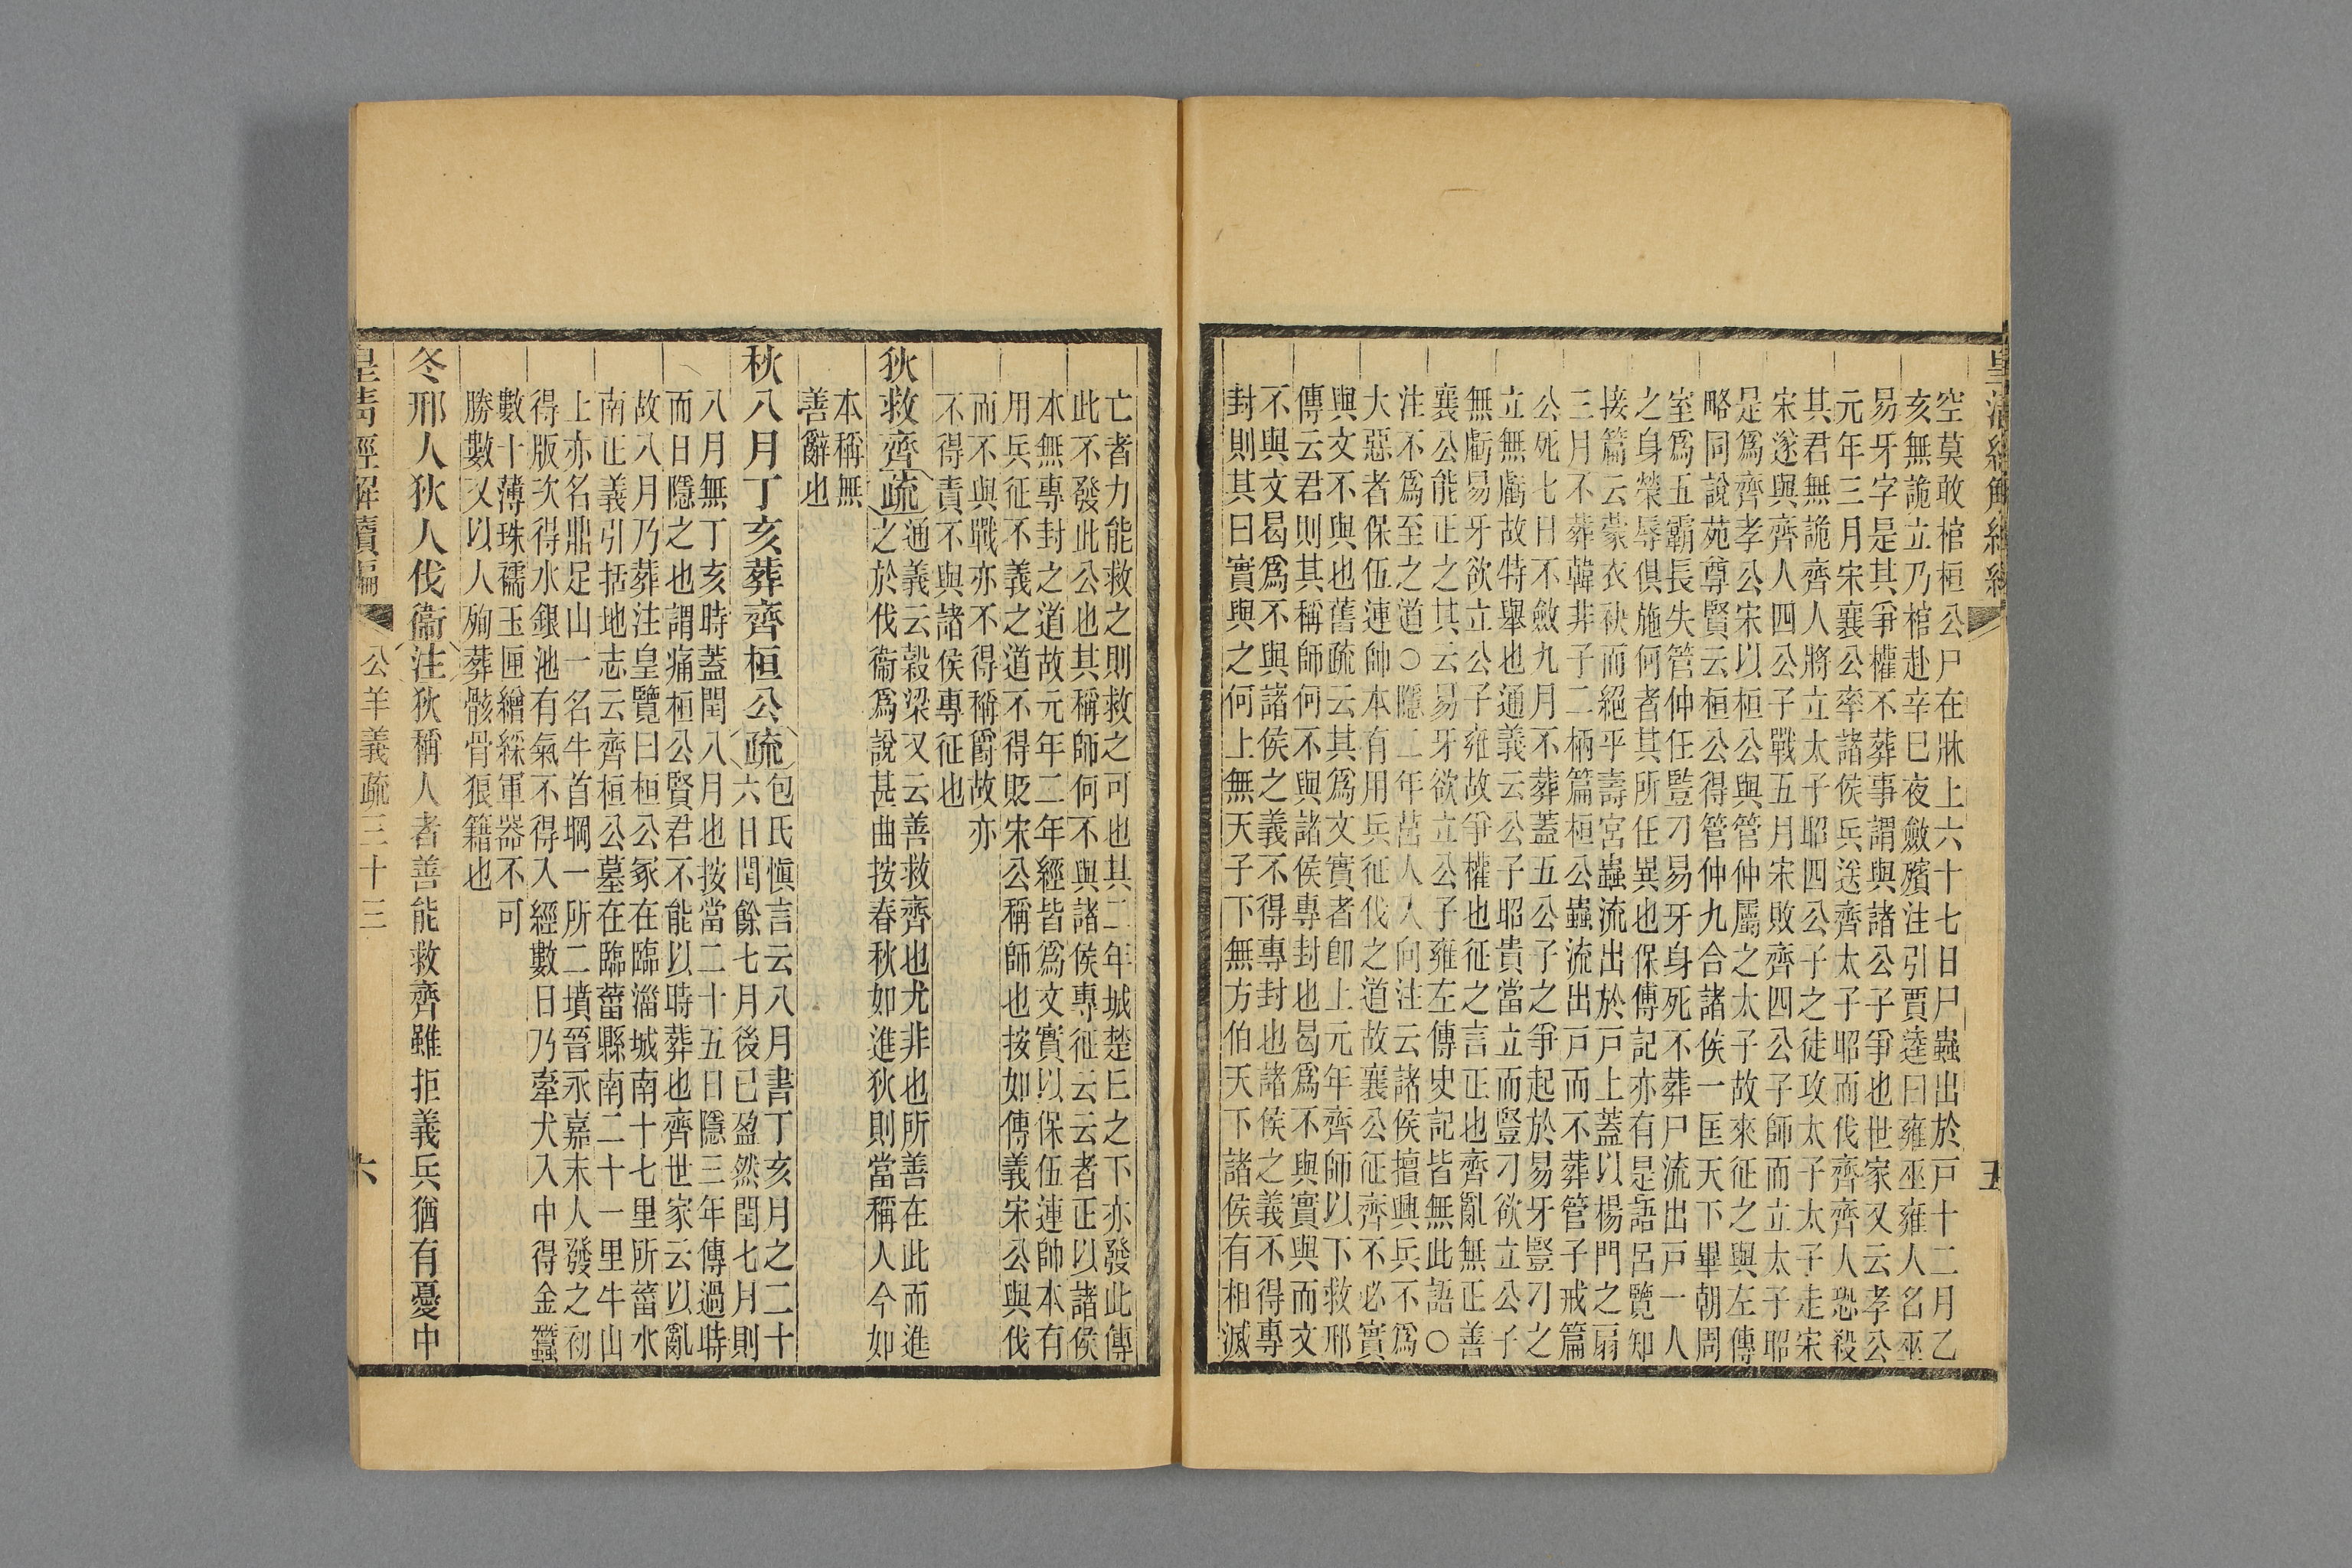 皇清經解續編
五
空莫敢棺桓公尸在牀上六十七日尸蟲出於戸十二月乙
亥無詭立乃棺赴辛巳夜斂殯注引賈逵曰雍巫雍人名巫
易牙字是其爭權不葬事謂與諸公子爭也世家又云孝公
元年三月宋襄公率諸侯兵送齊太子昭而伐齊齊人恐殺
其君無詭齊人將立太子昭四公子之徒攻太子太子走宋
宋遂與齊人四公子戰五月宋敗齊四公子師而立太子昭
是爲齊孝公宋以桓公與管仲屬之太子故來征之與左傳
略同說苑尊賢云桓公得管仲九合諸侯一匡天下畢朝周
室爲五霸長失管仲任豎刁易牙身死不葬尸流出戸一人
之身榮辱俱施何者其所任異也保傅記亦有是語呂覽知
接篇云蒙衣袂而絕乎壽宮蟲流出於戸上蓋以楊門之扇
三月不葬韓非子二柄篇桓公蟲流出戸而不葬管子戒篇
公死七日不斂九月不葬蓋五公子之爭起於易牙豎刁之
立無虧故特舉也通義云公子昭貴當立而豎刁欲立公子
無虧易牙欲立公子雍故爭權也征之言正也齊亂無正善
襄公能正之其云易牙欲立公子雍左傳史記皆無此語○
注不爲至之道○隱二年莒人入向注云諸侯擅興兵不爲
大惡者保伍連帥本有用兵征伐之道故襄公征齊不必實
與文不與也舊疏云其爲文實者卽上元年齊師以下救邢
傳云君則其稱師何不與諸侯專封也曷爲不與實與而文
不與文曷爲不與諸侯之義不得專封也諸侯之義不得專
封則其曰實與之何上無天子下無方伯天下諸侯有相滅
亡者力能救之則救之可也其二年城楚上之下亦發此傳
此不發此公也其稱師何不與諸侯專征云云者正以諸侯
本無專封之道故元年二年經皆爲文實以保伍連帥本有
用兵征不義之道不得貶宋公稱師也按如傳義宋公與伐
而不與戰亦不得稱爵故亦
不得責不與諸侯專征也
狄救齊疏通義云穀梁又云善救齊也尤非也所善在此而進
之於伐衞爲說甚曲按春秋如進狄則當稱人今如
本稱無
善辭也
秋八月丁亥葬齊桓公疏包氏愼言云八月書丁亥月之二十
六日閏餘七月後已盈然閏七月則
八月無丁亥時蓋閏八月也按當二十五日隱三年傳過時
而日隱之也謂痛桓公賢君不能以時葬也齊世家云以亂
故八月乃葬注皇覽曰桓公冢在臨淄城南十七里所菑水
南正義引括地志云齊桓公墓在臨菑縣南二十一里牛山
上亦名鼎足山一名牛首堈一所二墳晉永嘉末人發之初
得版次得水銀池有氣不得入經數日乃牽犬入中得金蠶
數十薄珠襦玉匣繒綵軍器不可
勝數又以人殉葬骸骨狼籍也
冬邢人狄人伐衞注狄稱人者善能救齊雖拒義兵猶有憂中
皇清經解續編
公羊義疏三十三
六